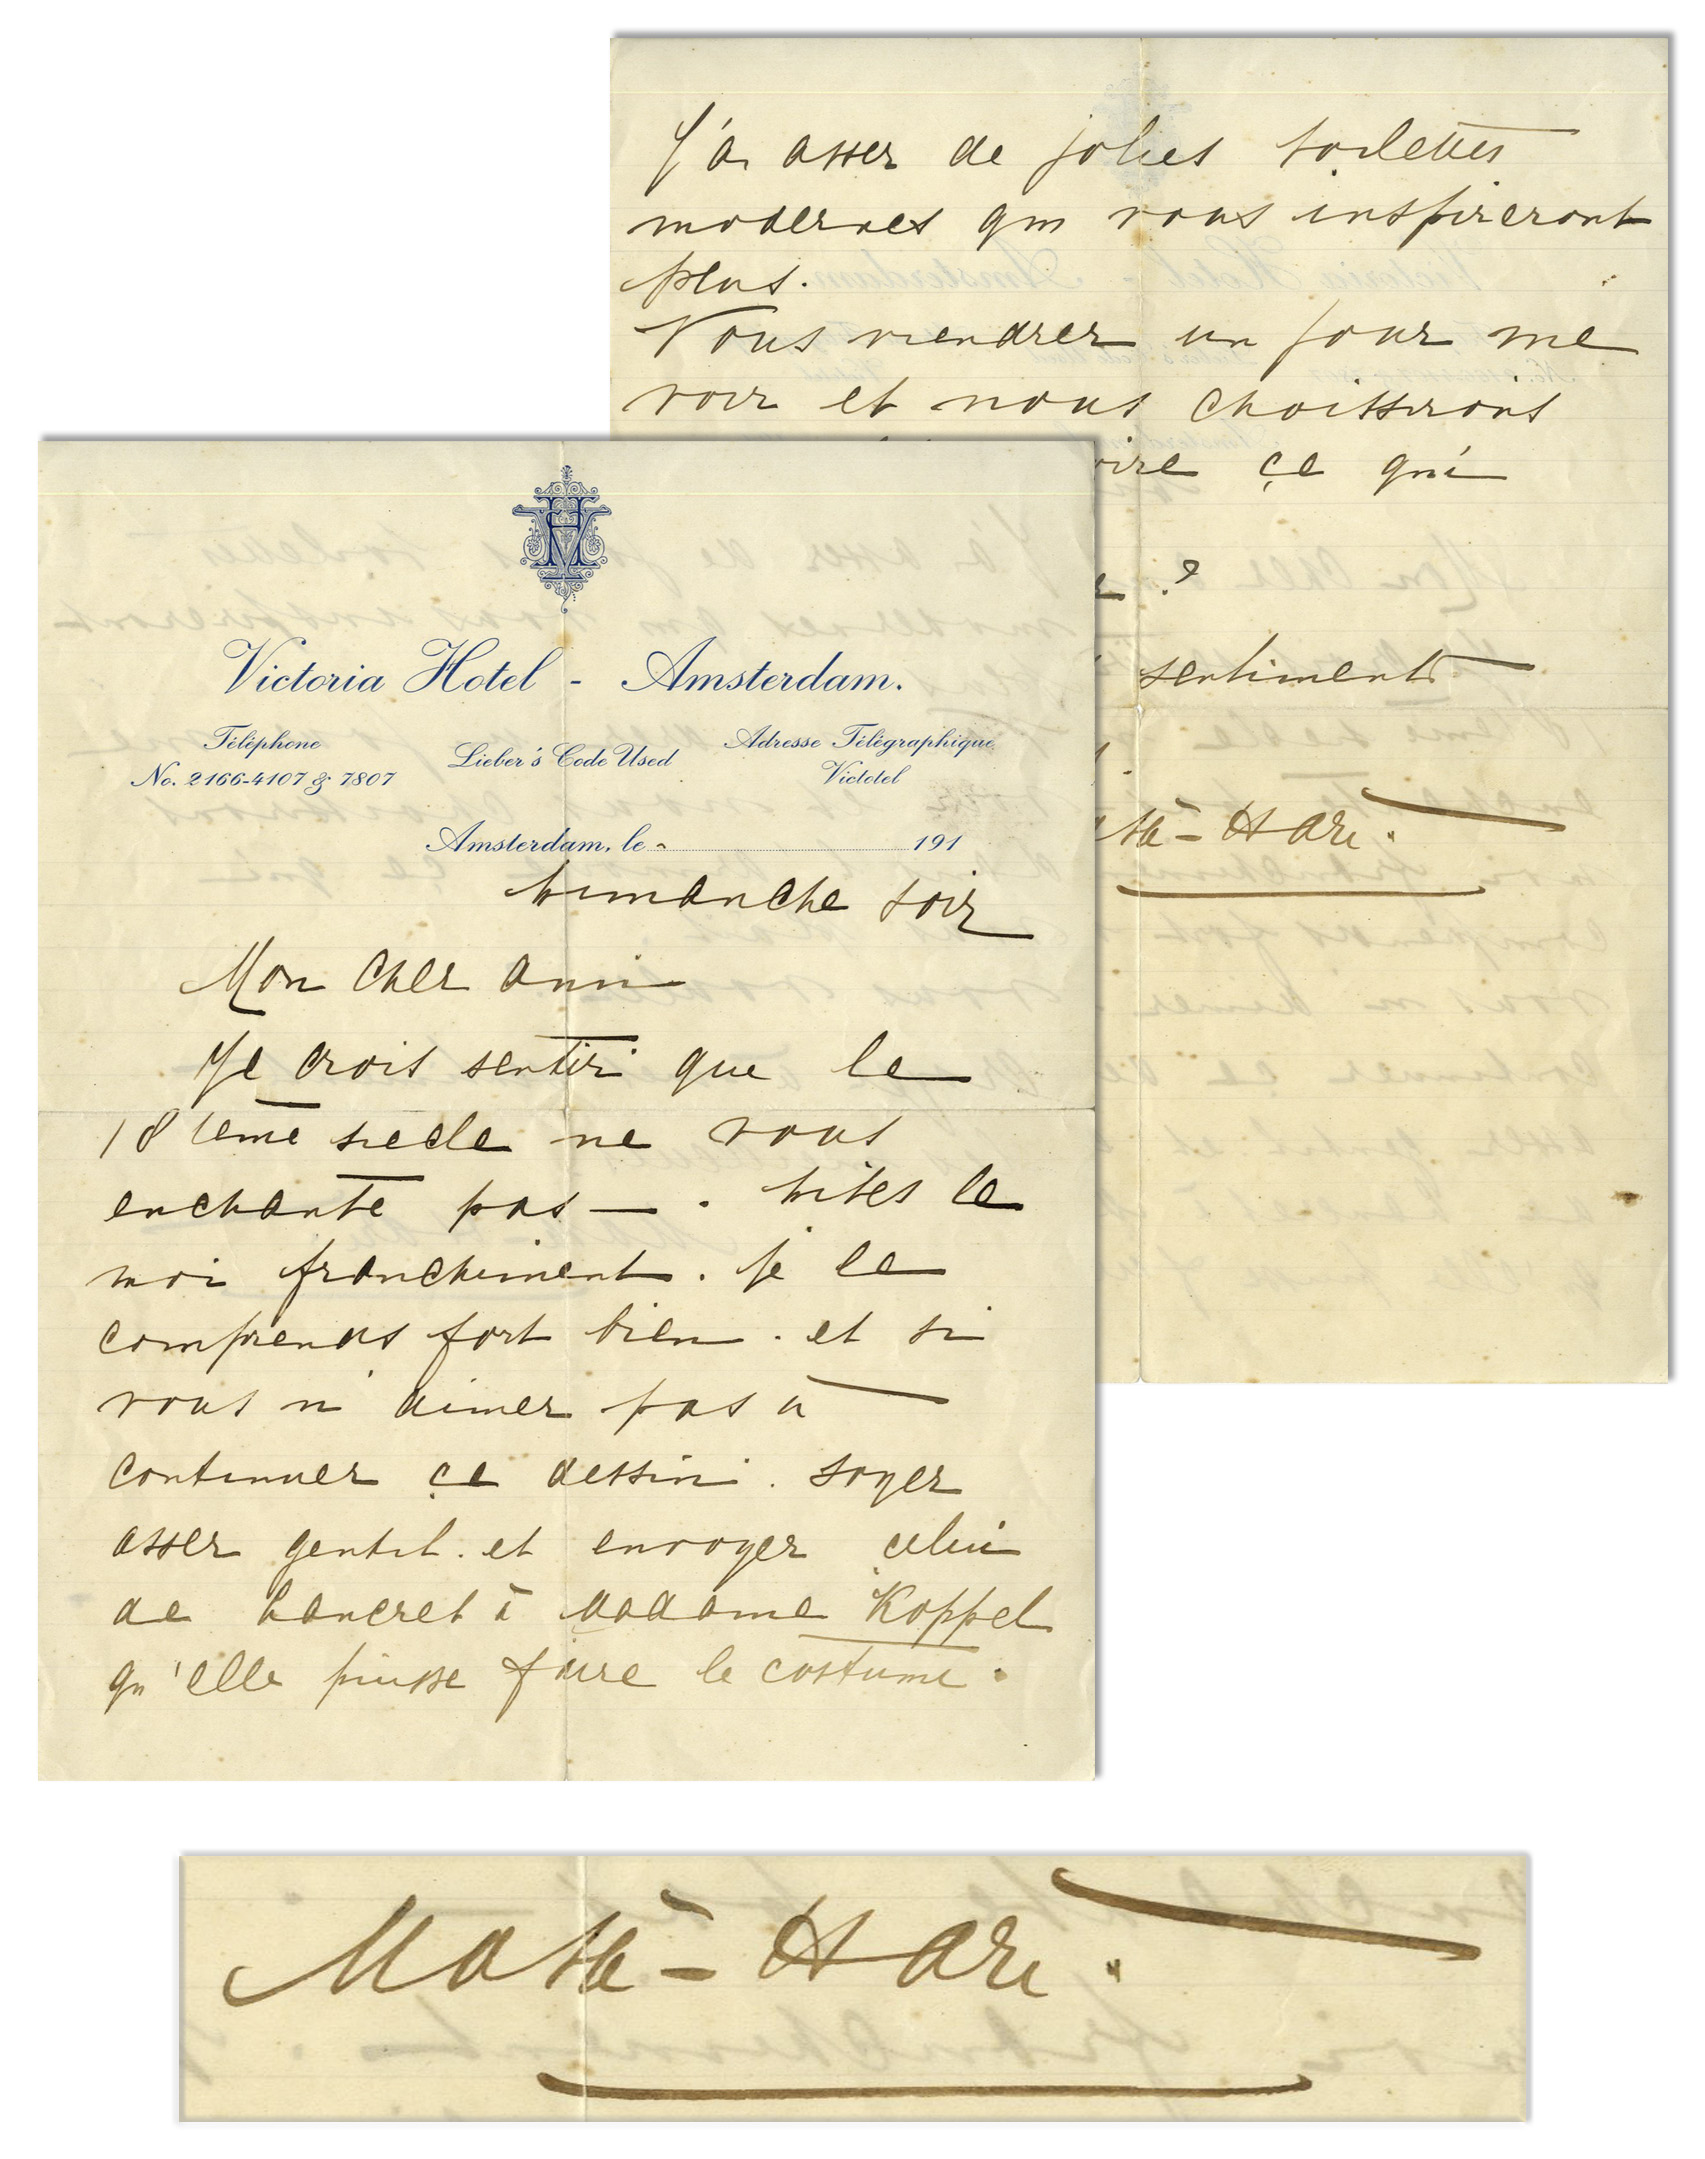 Victoria Hotel - Amsterdam.
Téléphone
No. 2166-4107 & 7807
Lieber's Code Used
Adresse Télégraphique
Victotel
Amsterdam, le 191
Dimanche soir
Mon cher ami
Je crois sentir que le
18ième siecle ne vous
enchante pas — . Dites le
moi franchement. je le
comprends fort bien. et si
vous n'aimez pas à
continuer ce dessin. soyez
assez gentil. et envoyez celui
de Lancret à Madame Koppel
qu'elle puisse faire le costume.
J'ai assez de jolies toilettes
modernes qui vous inspireront
plus.
Vous viendrez un jour me
voir et nous choisirons
ce qui
?
sentiments
Mata-Hari.
Mata-Hari.